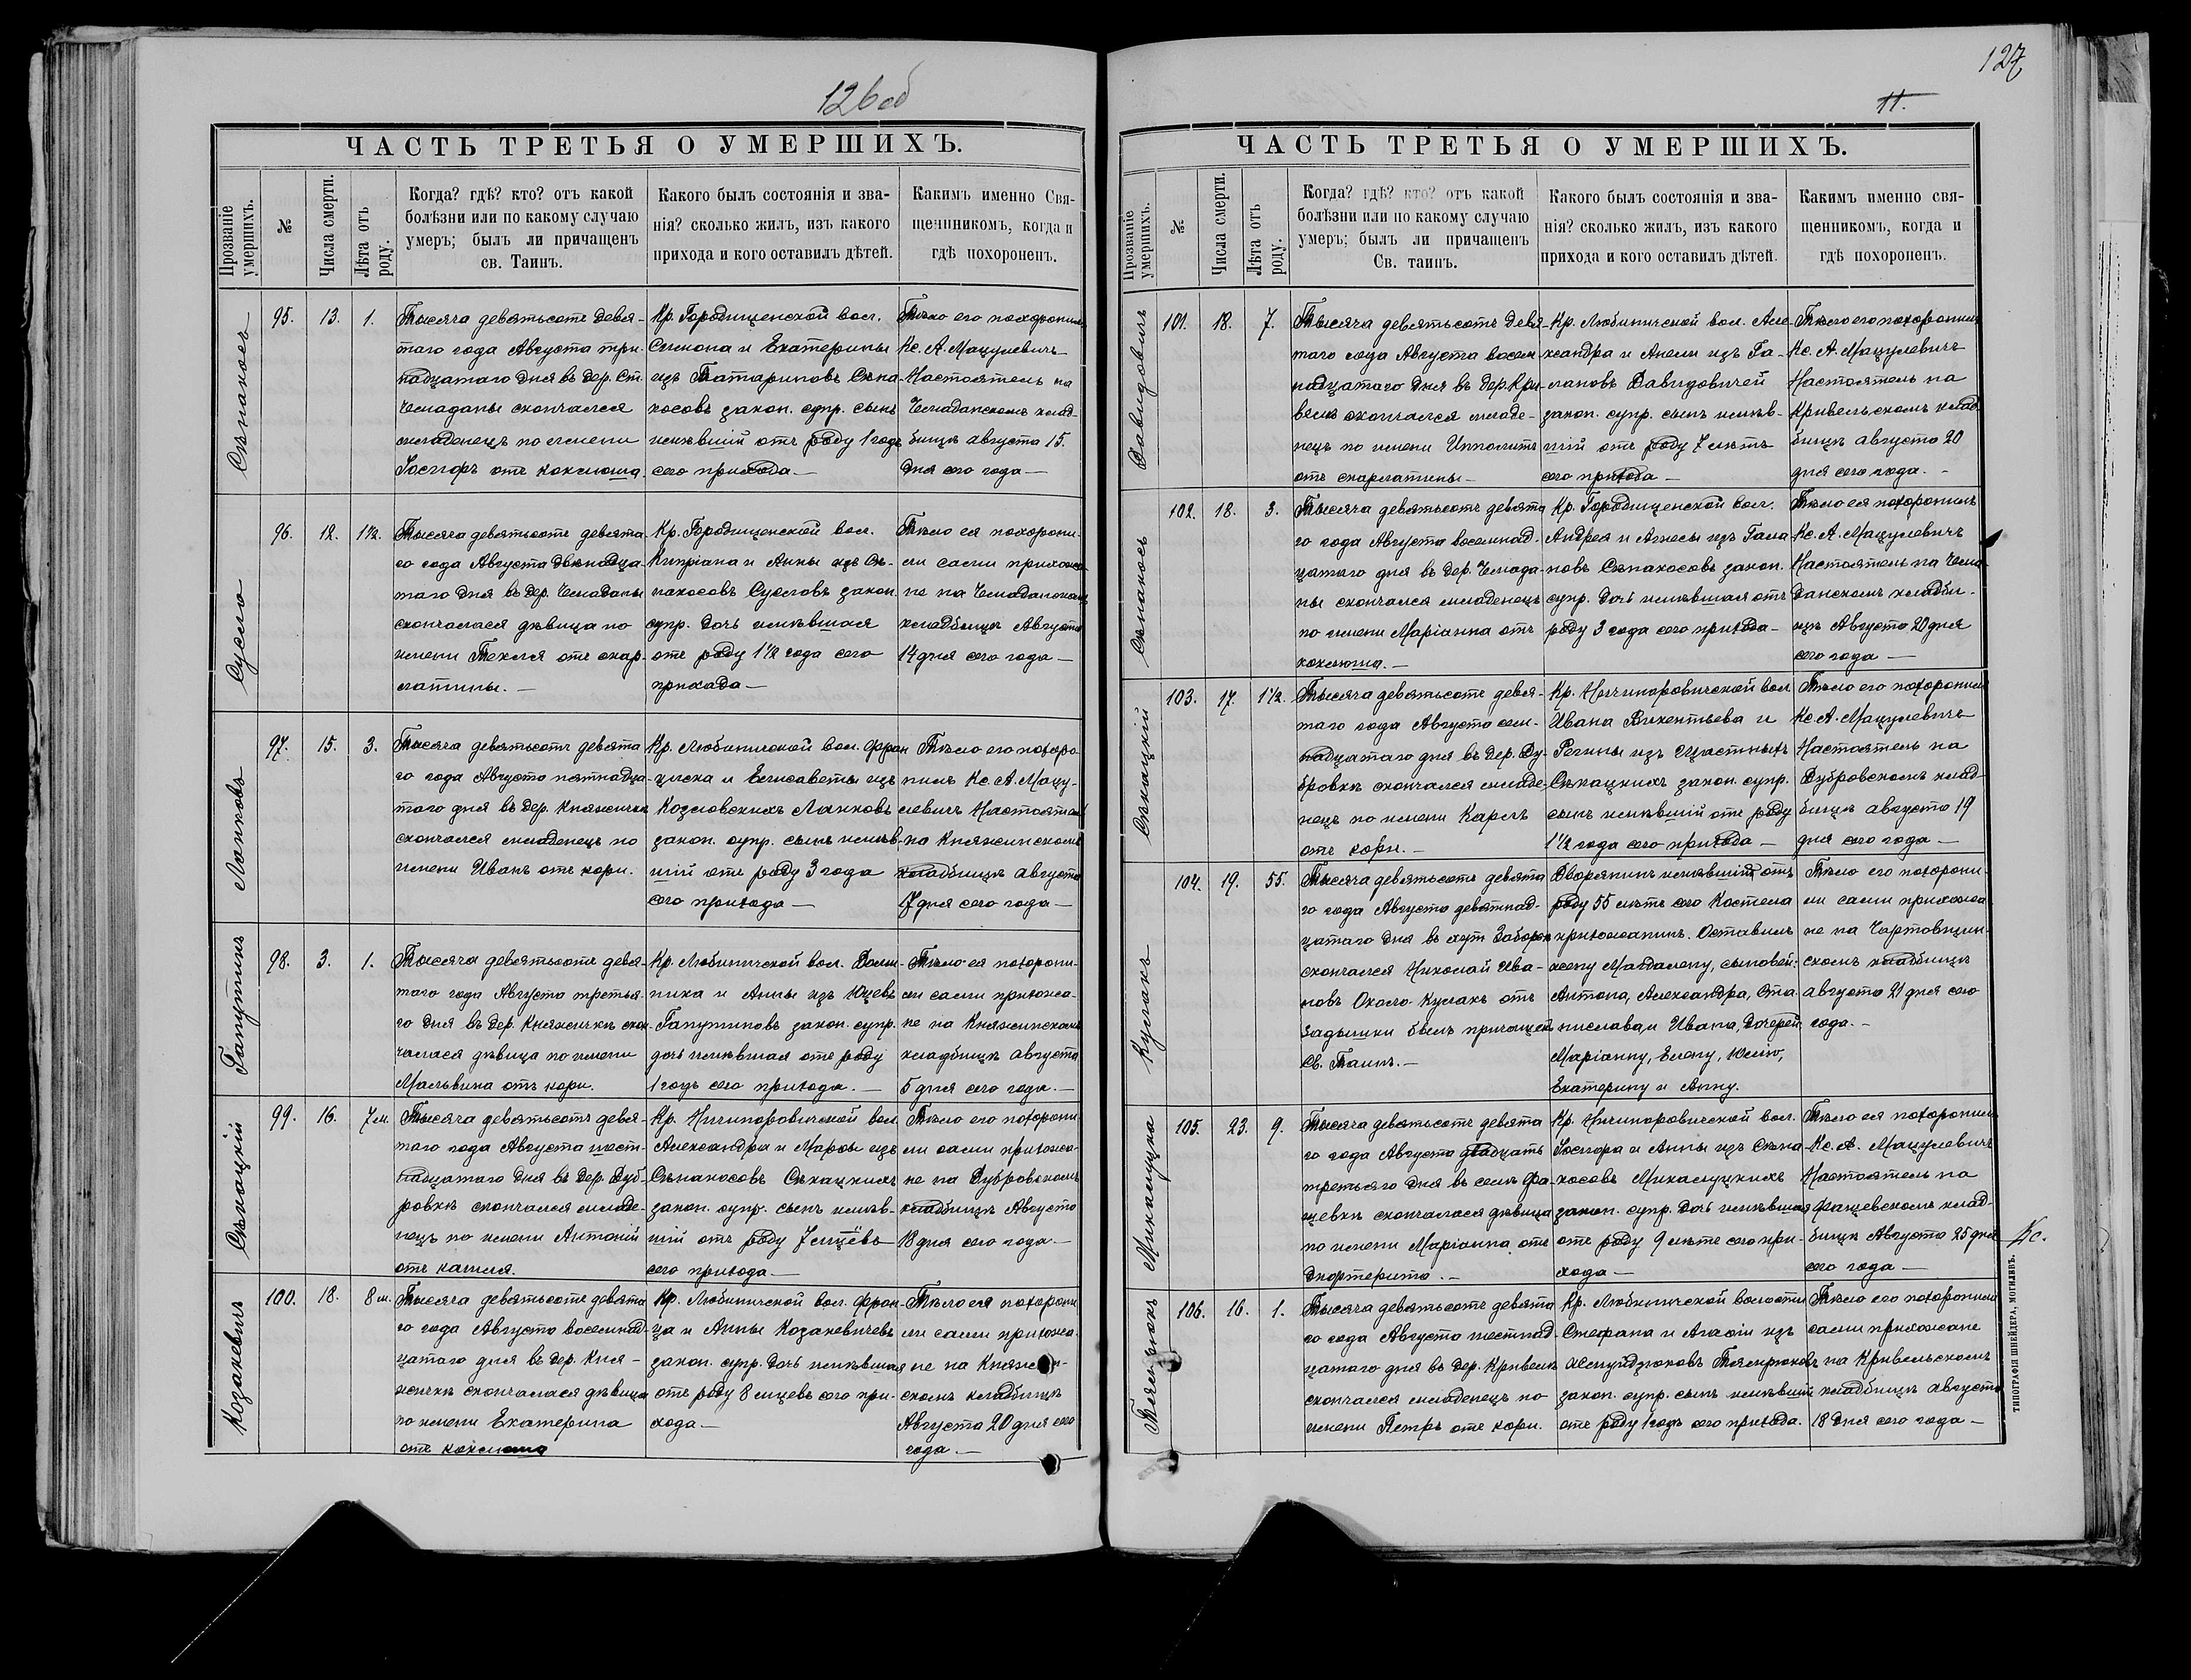 126 об
ЧАСТЬ ТРЕТЬЯ О УМЕРШИХЪ.
Прозваніе умершихъ.
№
Числа смерти.
Лѣта отъ роду.
Когда? гдѣ? кто? отъ какой
болѣзни или по какому случаю
умеръ; былъ ли причащенъ
св. Таинъ.
Какого былъ состоянія и зва-
нія? сколько жилъ, изъ какого
прихода и кого оставилъ дѣтей.
Какимъ именно Свя-
щеннникомъ, когда и
гдѣ похороненъ.
Сѣнакосъ
95.
13.
1.
Тысяча девятьсотъ девя-
таго года Августа три-
надцатаго дня въ дер. Ст.
Чемаданы скончался
младенецъ по имени
Іосифъ отъ коклюша.
Кр. Городищенской вол.
Симона и Екатерины
изъ Татариновъ Сѣна-
косовъ закон. супр. сынъ
имѣвшій отъ роду 1 годъ
сего прихода.—
Тѣло его похоронилъ
Кс. А. Мацулевичъ
Настоятель на
Чемаданскомъ клад-
бищѣ августа 15.
дня сего года—
Сусло
96.
12.
1½.
Тысяча девятьсотъ девята-
го года Августа двѣнадца-
таго дня въ дер. Чемаданы
скончалася дѣвица по
имени Текля отъ скар-
латины.—
Кр. Городищенской вол.
Кипріана и Анны изъ Сѣ-
накосовъ Сусловъ закон.
супр. дочь имѣвшая
отъ роду 1½ года сего
прихода—
Тѣло ея похорони-
ли сами прихожа-
не на Чемаданскомъ
кладбищѣ Августа
14 дня сего года—
Ланковъ
97.
15.
3.
Тысяча девятьсотъ девята-
го года Августа пятнадца-
таго дня въ дер. Княжичкѣ
скончался младенецъ по
имени Иванъ отъ кори.
Кр. Любиничской вол. Фран
циска и Елисаветы изъ
Козловскихъ Ланковъ
закон. супр. сынъ имѣв-
шій отъ роду 3 года
сего прихода—
Тѣло его похоро-
нилъ Кс. А. Мацу-
левичъ Настоятель
на Княжинскомъ
кладбищѣ августа
17 дня сего года—
Гапутинъ
98.
3.
1.
Тысяча девятьсотъ девя-
таго года Августа третья-
го дня въ дер. Княжичкѣ скон-
чалася дѣвица по имени
Мальвина отъ кори.
Кр. Любиничской вол. Доми-
ника и Анны изъ Юцевъ
Гапутиновъ закон. супр.
дочь имѣвшая отъ роду
1 годъ сего прихода.—
Тѣло ея похорони-
ли сами прихожа-
не на Княжинскомъ
кладбищѣ августа
5 дня сего года.—
Сѣкацкій
99.
16.
7 м.
Тысяча девятьсотъ девя-
таго года Августа шест-
надцатаго дня въ дер. Дуб-
ровкѣ скончался младе-
нецъ по имени Антоній
отъ кашля.
Кр. Ничипоровичской вол.
Александра и Марфы изъ
Сѣнакосовъ Сѣкацкихъ
закон. супр. сынъ имѣв-
шій отъ роду 7 мцѣвъ
сего прихода—
Тѣло его похорони
ли сами прихожа-
не на Дубровскомъ
кладбищѣ Августа
18 дня сего года.—
Козакевичъ
100.
18.
8 м.
Тысяча девятьсотъ девята
го года Августа восемнад-
цатаго дня въ дер. Кня-
жичкѣ скончалася дѣвица
по имени Екатерина
отъ коклюша
Кр. Любиничской вол. Фран-
ца и Анны Козакевичевъ
закон. супр. дочь имѣвшая
отъ роду 8 мцевъ сего при-
хода—
Тѣло ея похорони
ли сами прихожа-
не на Княжин-
скомъ кладбищѣ
Августа 20 дня сего
года.—
127
11.
ЧАСТЬ ТРЕТЬЯ О УМЕРШИХЪ.
Прозваніе умершихъ.
№
Числа смерти.
Лѣта отъ роду.
Когда? гдѣ? кто? отъ какой
болѣзни или по какому случаю
умеръ; былъ ли причащенъ
Св. таинъ.
Какого былъ состоянія и зва-
нія? сколько жилъ, изъ какого
прихода и кого оставилъ дѣтей.
Какимъ именно свя-
щенникомъ, когда и
гдѣ похороненъ.
Давидовичъ
101.
18.
7.
Тысяча девятьсотъ девя-
таго года Августа восем
надцатаго дня въ дер. Кри-
велѣ скончался младе-
нецъ по имени Ипполитъ
отъ скарлатины—
Кр. Любиничской вол. Але-
ксандра и Анели изъ Га-
лановъ Давидовичей
закон. супр. сынъ имѣв-
шій отъ роду 7 лѣтъ
сего прихода—
Тѣло его похоронилъ
Кс. А. Мацулевичъ
Настоятель на
Кривельскомъ клад-
бищѣ августа 20
дня сего года.—
Сѣнакосъ
102.
18.
3.
Тысяча девятьсотъ девята
го года Августа восемнад-
цатаго дня въ дер. Чемада-
ны скончался младенецъ
по имени Маріанна отъ
коклюша.—
Кр. Городищенской вол.
Андрея и Агнесы изъ Гала
новъ Сѣнакосовъ закон.
супр. дочь имѣвшая отъ
роду 3 года сего прихода—
Тѣло ея похоронилъ
Кс. А. Мацулевичъ
Настоятель на Чема-
данскомъ кладби-
щѣ Августа 20 дня
сего года—
Сѣкацкій
103.
17.
1½.
Тысяча девятьсотъ девя-
таго года Августа сем-
надцатаго дня въ дер. Ду-
бровкѣ скончался младе-
нецъ по имени Карлъ
отъ кори.—
Кр. Ничипоровичской вол
Ивана Викентьева и
Регины изъ Щастныхъ
Сѣкацкихъ закон. супр.
сынъ имѣвшій отъ роду
1½ года сего прихода—
Тѣло его похоронилъ
Кс. А. Мацулевичъ
Настоятель на
Дубровскомъ клад-
бищѣ августа 19
дня сего года—
Кулакъ
104.
19.
55.
Тысяча девятьсотъ девята
го года Августа девятнад-
цатаго дня въ хут.
скончался Николай Ива-
новъ Около-Кулакъ отъ
задышки былъ причащенъ
Св. Таинъ.—
Дворянинъ имѣвшій отъ
роду 55 лѣтъ сего Костела
прихожанинъ. Оставилъ
жену Магдалену, сыновей:
Антона, Александра, Ста-
нислава и Ивана, дочерей
Маріанну, Елену, Юлію,
Екатерину и Анну.
Тѣло его похорони-
ли сами прихожа
не на Чертовщин-
скомъ кладбищѣ
Августа 21 дня сего
года.—
Микалуцка
105.
23.
9.
Тысяча девятьсотъ девята
го года Августа двадцать
третьяго дня въ селѣ Фа-
щевкѣ скончалася дѣвица
по имени Маріанна отъ
дифтерита.—
Кр. Ничипоровичской вол.
Іосифа и Анны изъ Сѣна-
косовъ Микалуцкихъ
закон. супр. дочь имѣвшая
отъ роду 9 лѣтъ сего при-
хода—
Тѣло ея похоронилъ
Кс. А. Мацулевичъ
Настоятель на
Фащевскомъ клад-
бищѣ Августа 25 дня
сего года—
Кс.
106.
16.
1.
Тысяча девятьсотъ девята
го года Августа шестнад-
цатаго дня въ дер. Кривелѣ
скончался младенецъ по
имени Петръ отъ кори.
Кр. Любиничской волости
Стефана и Агафіи изъ
закон. супр. сынъ имѣвшій
отъ роду 1 годъ сего прихода.
Тѣло его похоронили
сами прихожане
на Кривельскомъ
кладбищѣ августа
18 дня сего года—
ТИПОГРАФІЯ ШНЕЙДЕРА, МОГИЛЕВЪ.